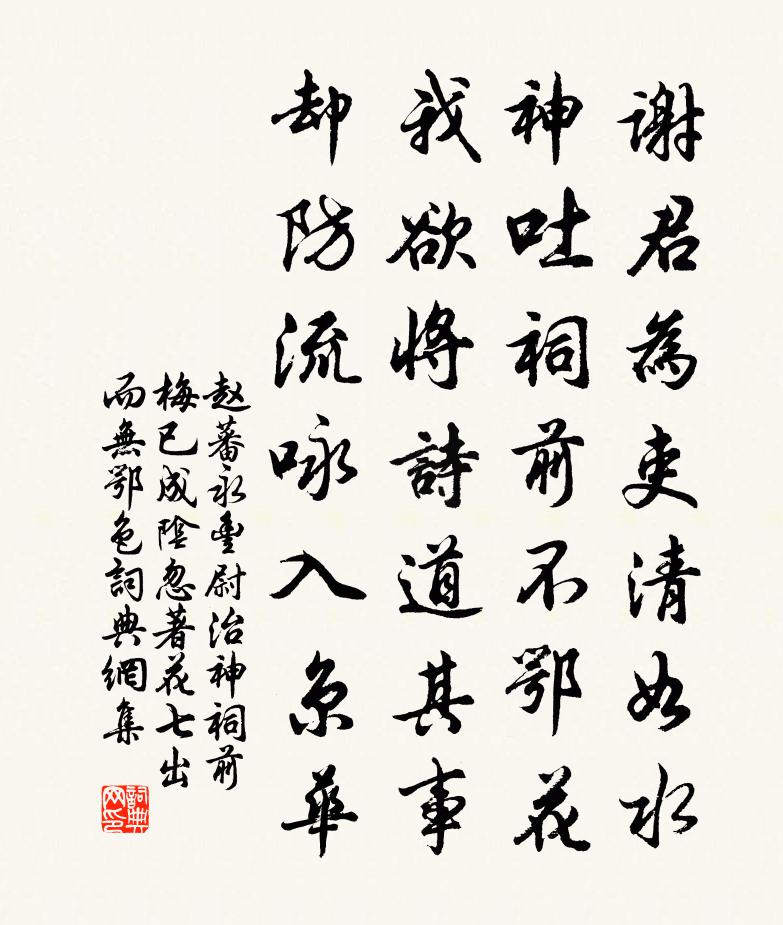 謝君為吏清如水
神吐祠前不鄂花
我欲將詩道其事
却防流咏入京華
赵蕃永豐尉治神祠前
梅已成陰忽著花七出
而無鄂色詞典網集
詞典
网印